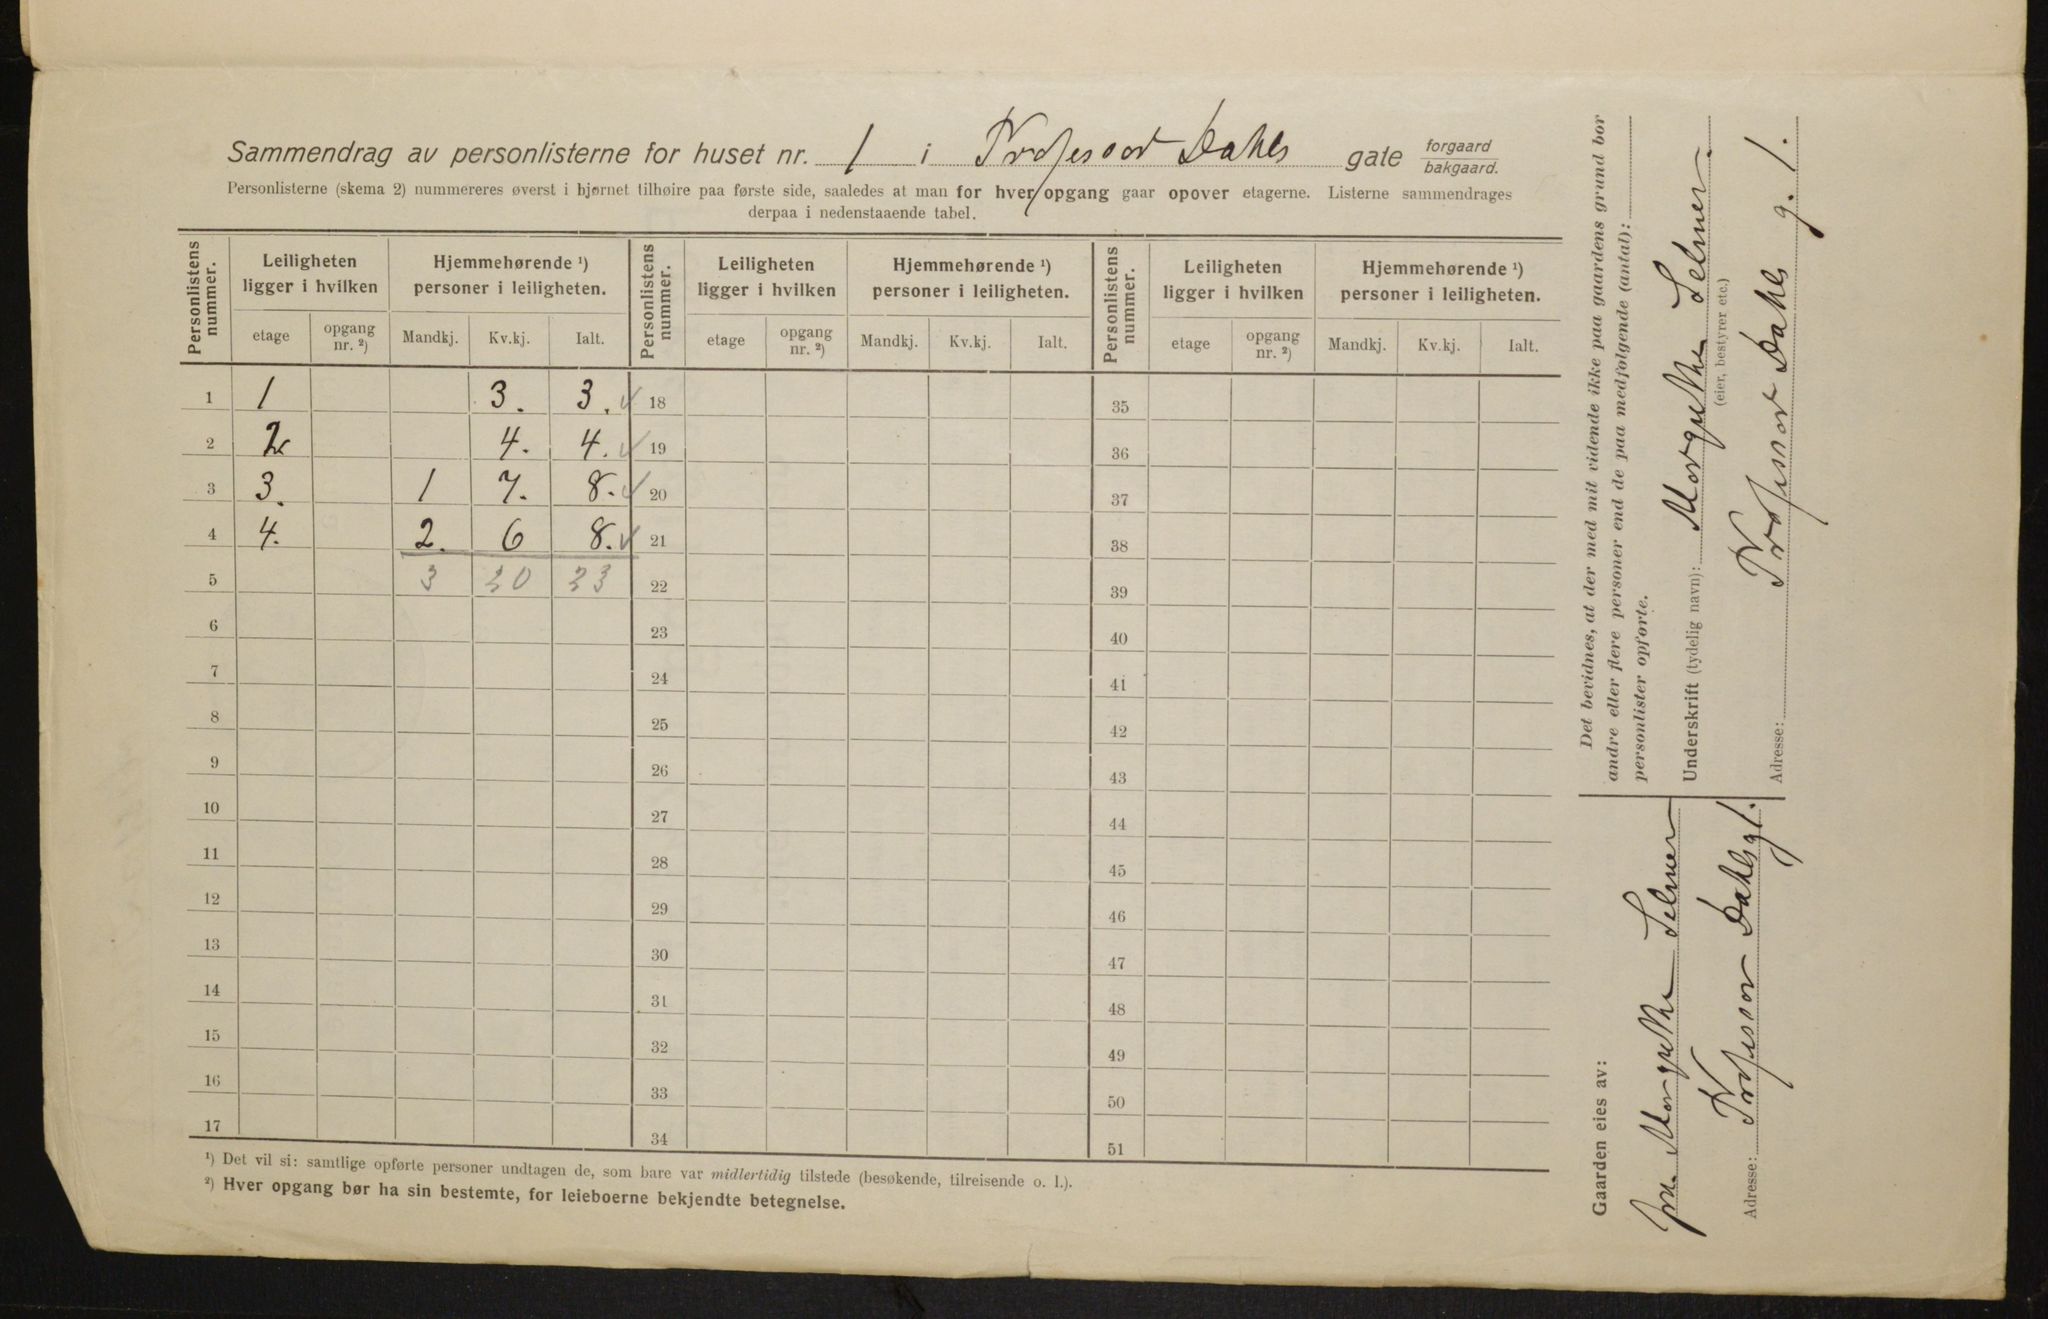 Sammendrag av personlisterne for huset nr. 1 i Professor Dahls gate forgaard
bakgaard.
Personlisterne (skema 2) nummereres øverst i hjørnet tilhøire paa første side, saaledes at man for hver opgang gaar opover etagerne. Listerne sammendrages
derpaa i nedenstaaende tabel.
Personlistens nummer. Leiligheten ligger i hvilken Hjemmehørende ¹) personer i leiligheten. Personlistens nummer. Leiligheten ligger i hvilken Hjemmehørende ¹) personer i leiligheten. Personlistens nummer. Leiligheten ligger i hvilken Hjemmehørende ¹) personer i leiligheten.
etage opgang nr. ²) Mandkj. Kv.kj. Ialt. etage opgang nr. ²) Mandkj. Kv.kj. Ialt. etage opgang nr. ²) Mandkj. Kv.kj. Ialt.
1 1 3. 3. 18 35
2 2 4. 4. 19 36
3 3. 1 7. 8. 20 37
4 4. 2. 6 8. 21 38
5 3 20 23 22 39
6 23 40
7 24 41
8 25 42
9 26 43
10 27 44
11 28 45
12 29 46
13 30 47
14 31 48
15 32 49
16 33 50
17 34 51
¹) Det vil si: samtlige opførte personer undtagen de, som bare var midlertidig tilstede (besøkende, tilreisende o. l.).
²) Hver opgang bør ha sin bestemte, for leieboerne bekjendte betegnelse.
Det bevidnes, at der med mit vidende ikke paa gaardens grund bor
andre eller flere personer end de paa medfølgende (antal):
personlister opførte.
Underskrift (tydelig navn): Selmer
(eier, bestyrer etc.)
Adresse: Professor Dahls g. 1.
Gaarden eies av:
Selmer
Adresse: Professor Dahls g 1.